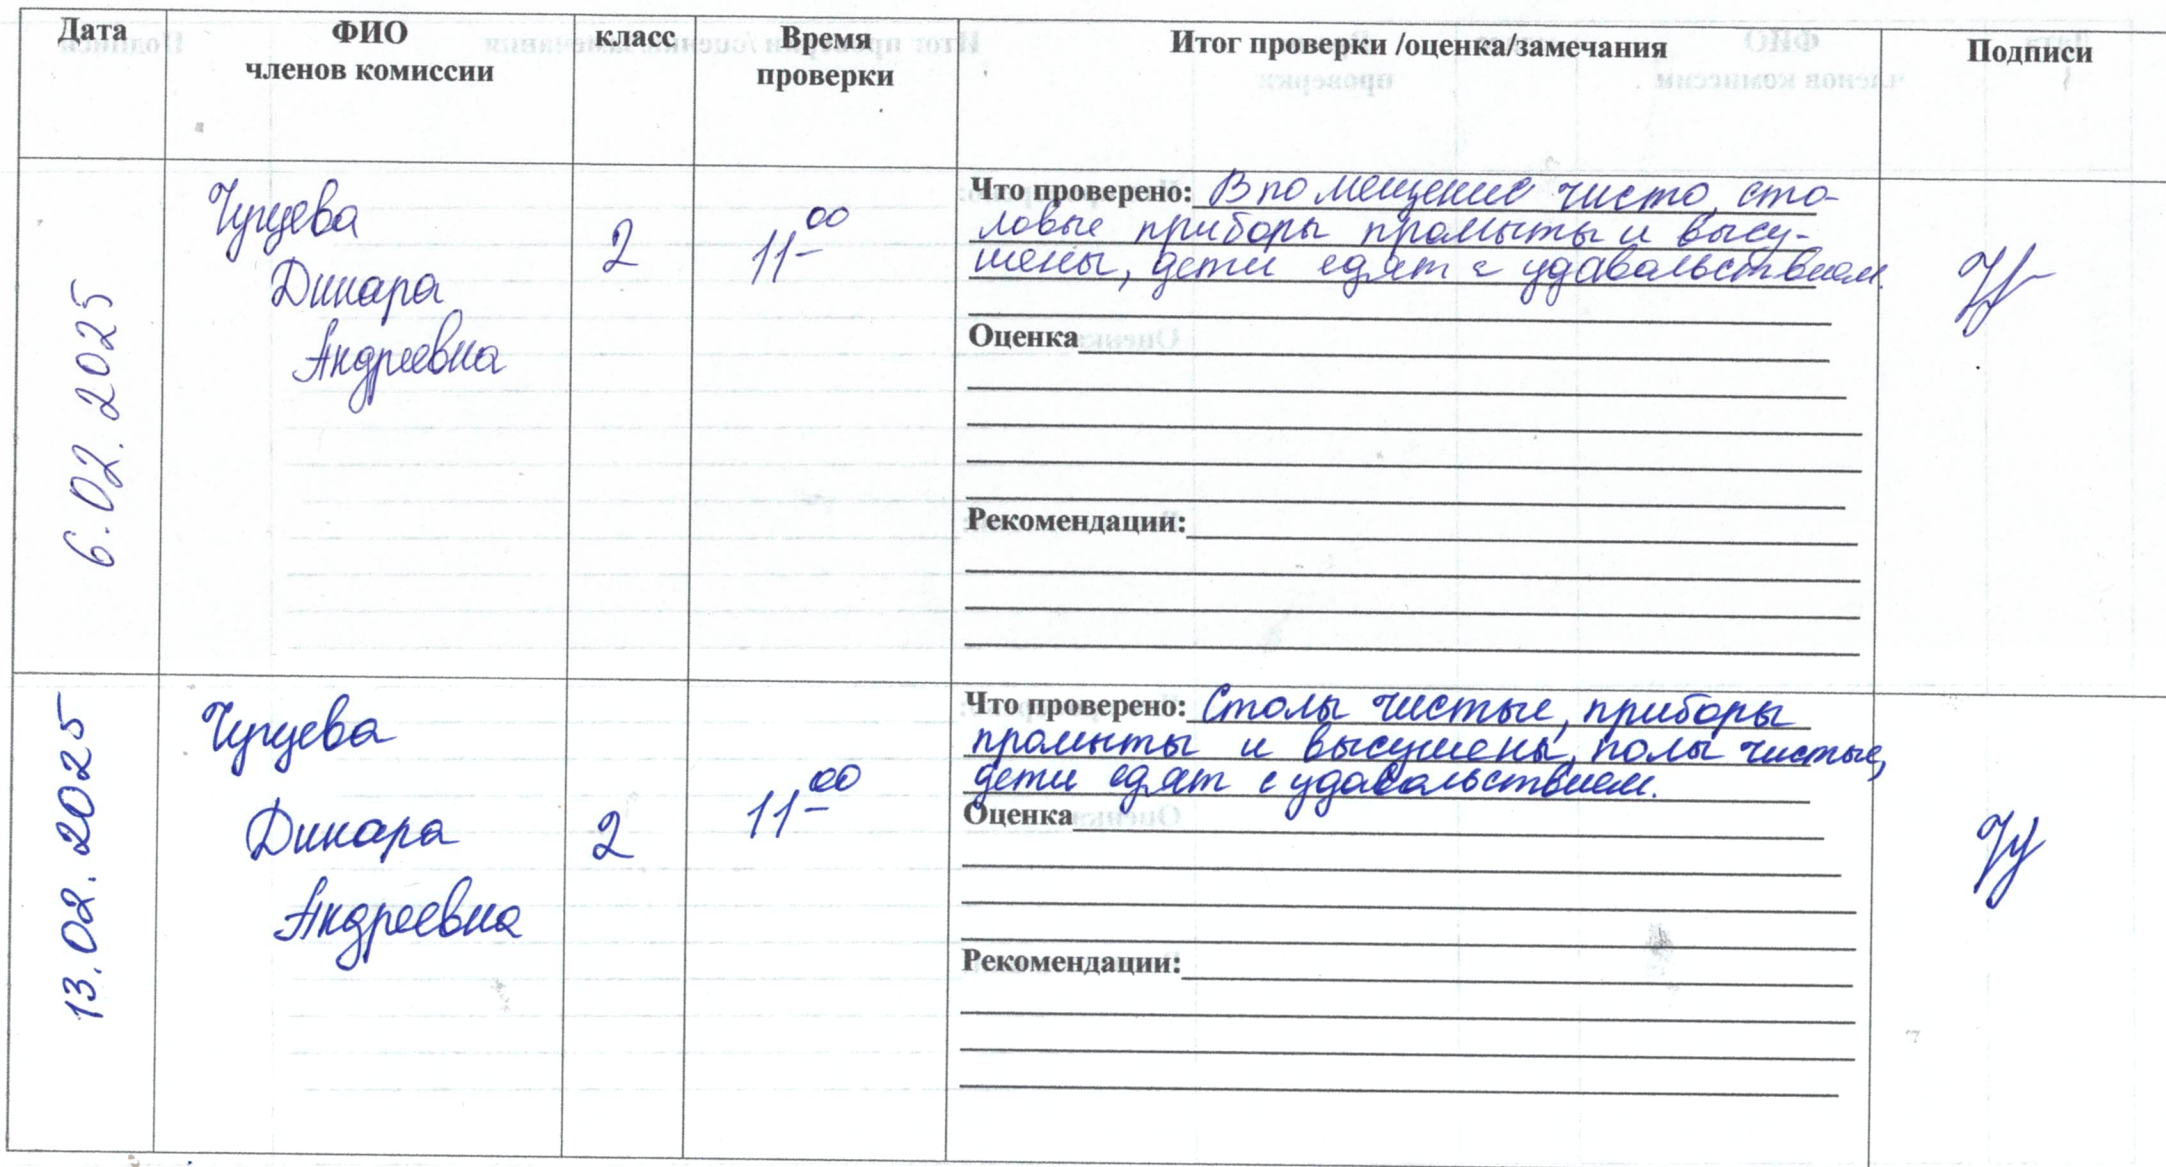 Дата ФИО класс Время Итог проверки /оценка/замечания Подписи
членов комиссии проверки
6.02.2025
Чугуева
Динара
Андреевна
2
11 00
Что проверено: В помещение чисто, сто-
ловые приборы промыты и высу-
шены, дети едят с удавальствием.
Оценка
Рекомендации:
13.02.2025
Чугуева
Динара
Андреевна
2
11 00
Что проверено: Столы чистые, приборы
промыты и высушены, полы чистые,
дети едят с удавальствием.
Оценка
Рекомендации: